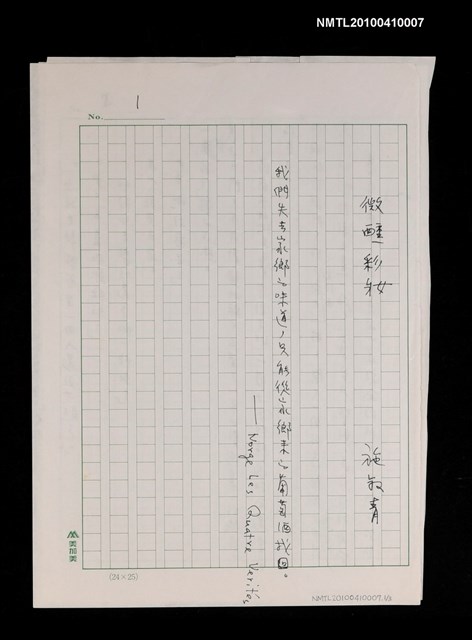 NMTL20100410007
No. 1
微醺彩妝
施叔青
我們失去家鄉的味道，只能從家鄉來的葡萄酒找回。
—Norge Les Quatre Vérités
美加美
(24×25)
NMTL20100410007.1/3